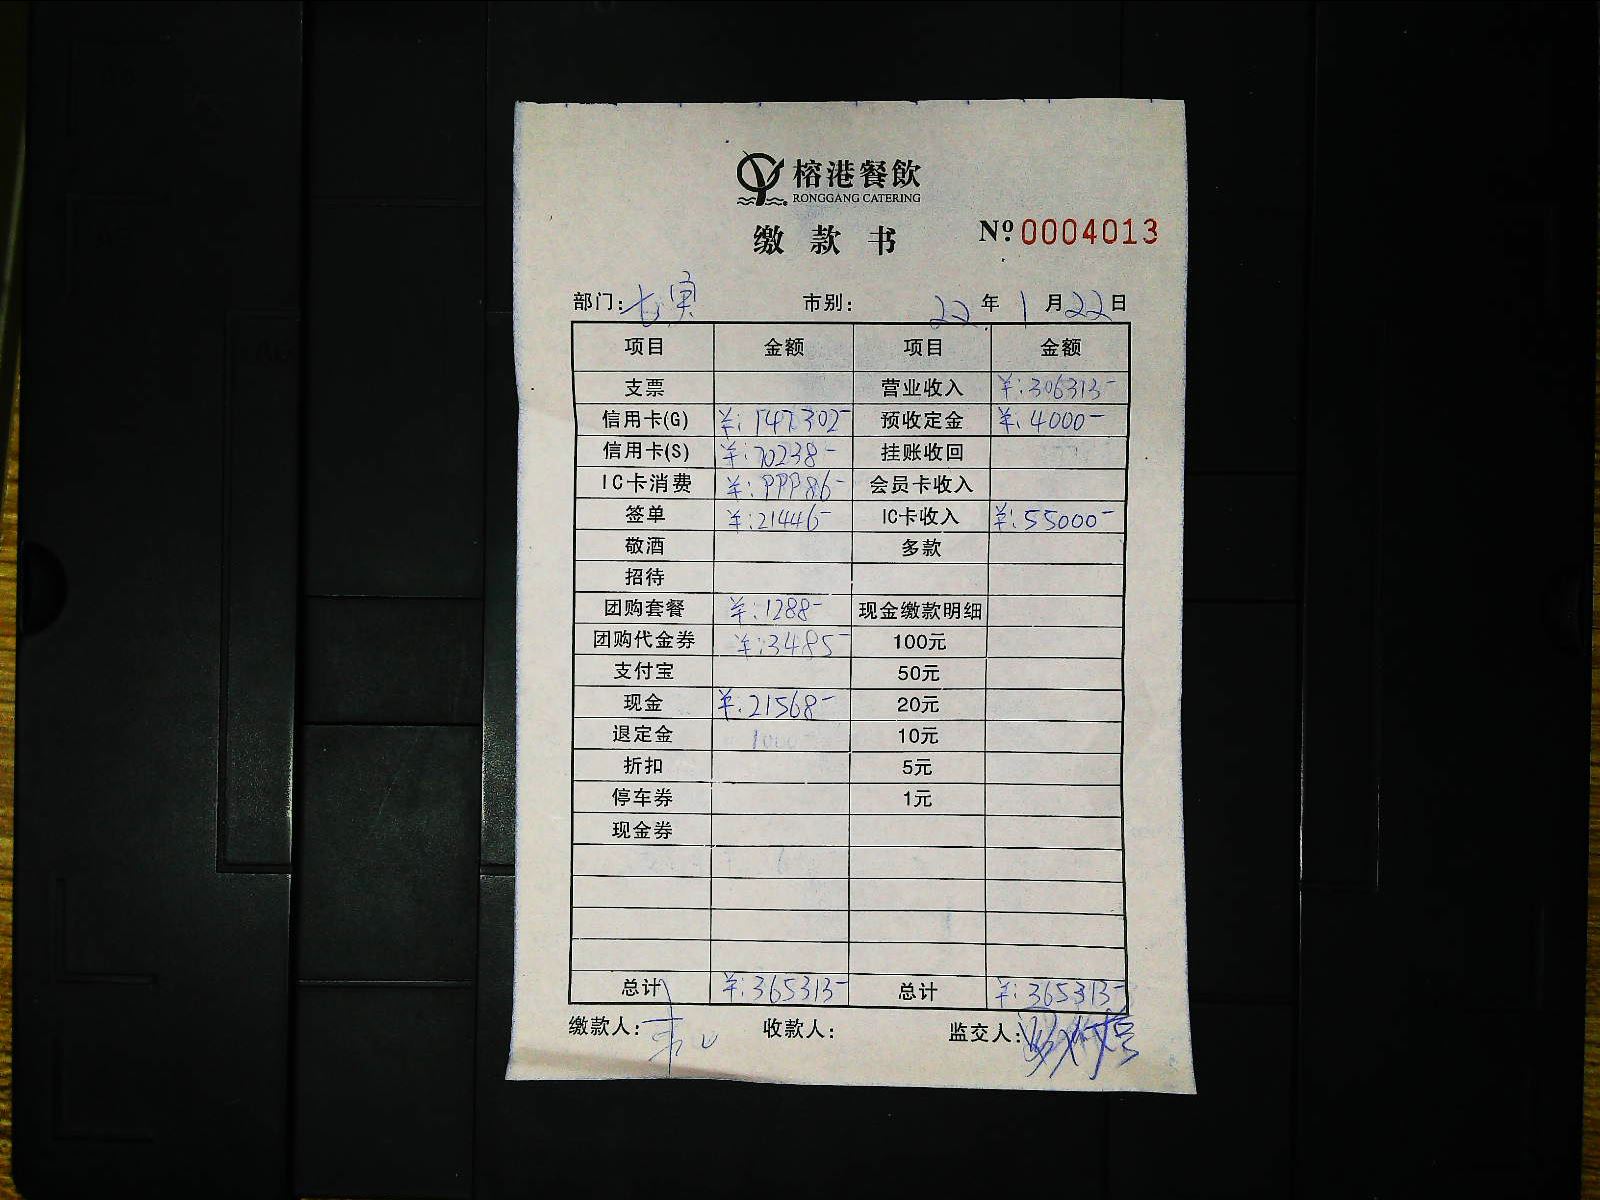 榕港餐飲
RONGGANG CATERING
缴款书 Nº 0004013
部门: 市别: 22 年 1 月 22 日
项目 金额 项目 金额
支票 营业收入 ¥:306313-
信用卡(G) ¥:147302- 预收定金 ¥:4000-
信用卡(S) ¥:70238- 挂账收回
IC卡消费 ¥:99986- 会员卡收入
签单 ¥:21446- IC卡收入 ¥:55000-
敬酒 多款
招待
团购套餐 ¥:1288- 现金缴款明细
团购代金券 ¥:3485- 100元
支付宝 50元
现金 ¥:21568- 20元
退定金 1000- 10元
折扣 5元
停车券 1元
现金券
总计 ¥:365313- 总计 ¥:365313-
缴款人: 收款人: 监交人: